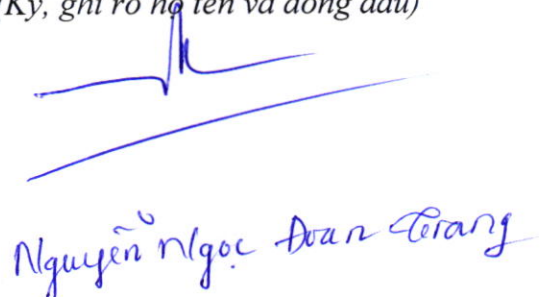 (Ký, ghi rõ họ tên và đóng dấu)
Nguyễn Ngọc Đoan Trang